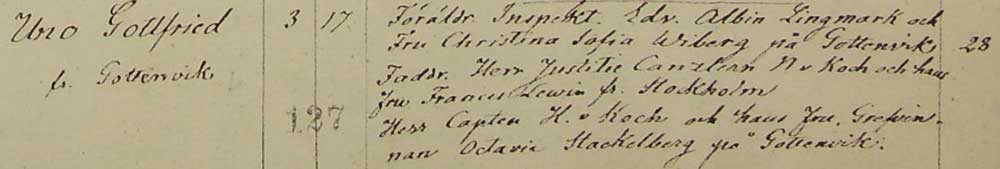 Uno Gottfried 3 17. Föräldr. Inspekt. Edv. Albin Lingmark och
Fru Christina Sofia Wiberg på Gottenvik 28
fr. Gottenvik Faddr. Herr Justitie Canzleren N v Koch och hans
fru Frances Lewin fr. Stockholm
127
Herr Capten H. v Koch och hans fru, Grefvin-
nan Octavia Stackelberg på Gottenvik.